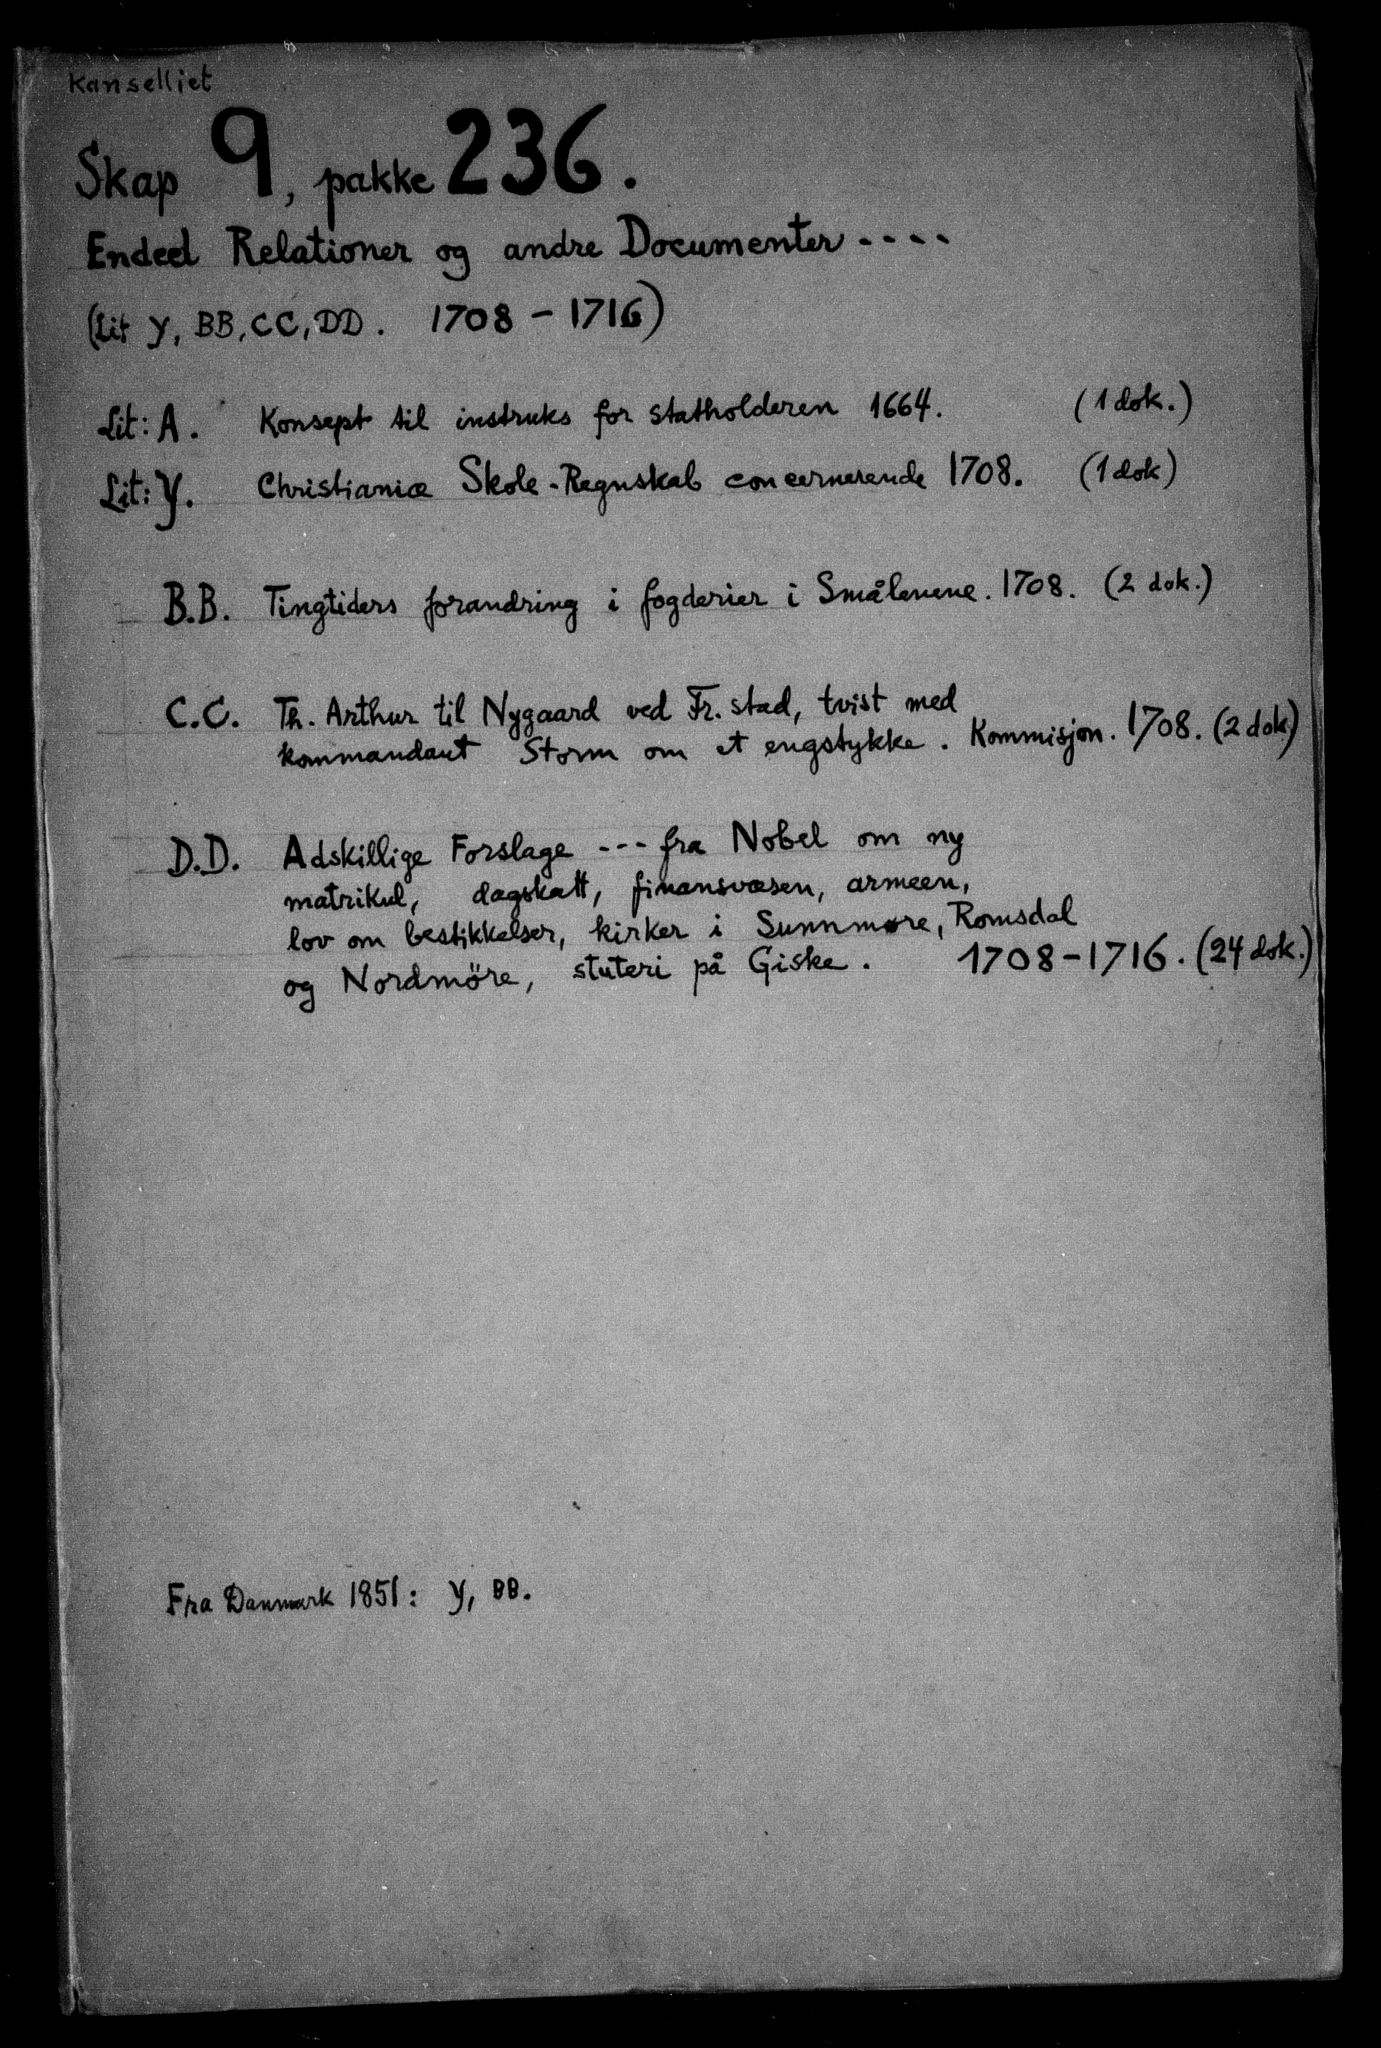 Kanselliet
Skap 9, pakke 236.
Endeel Relationer og andre Documenter ----
(Lit Y, BB, CC, DD. 1708 - 1716)
Lit: A. Konsept til instruks for statholderen 1664. (1 dok.)
Lit: Y. Christianiæ Skole-Regnskab concernerende 1708. (1 dok)
B.B. Tingtiders forandring i fogderier i Smålenene. 1708. (2 dok.)
C.C. Th. Arthur til Nygaard ved Fr. stad, tvist med
kommandant Storm om et engstykke. Kommisjon. 1708. (2 dok)
D.D. Adskillige Forslage --- fra Nobel om ny
matrikul, dagskatt, finansvæsen, armeen,
lov om bestikkelser, kirker i Sunnmøre, Romsdal
og Nordmöre, stuteri på Giske. 1708-1716. (24 dok.)
Fra Danmark 1851: Y, BB.